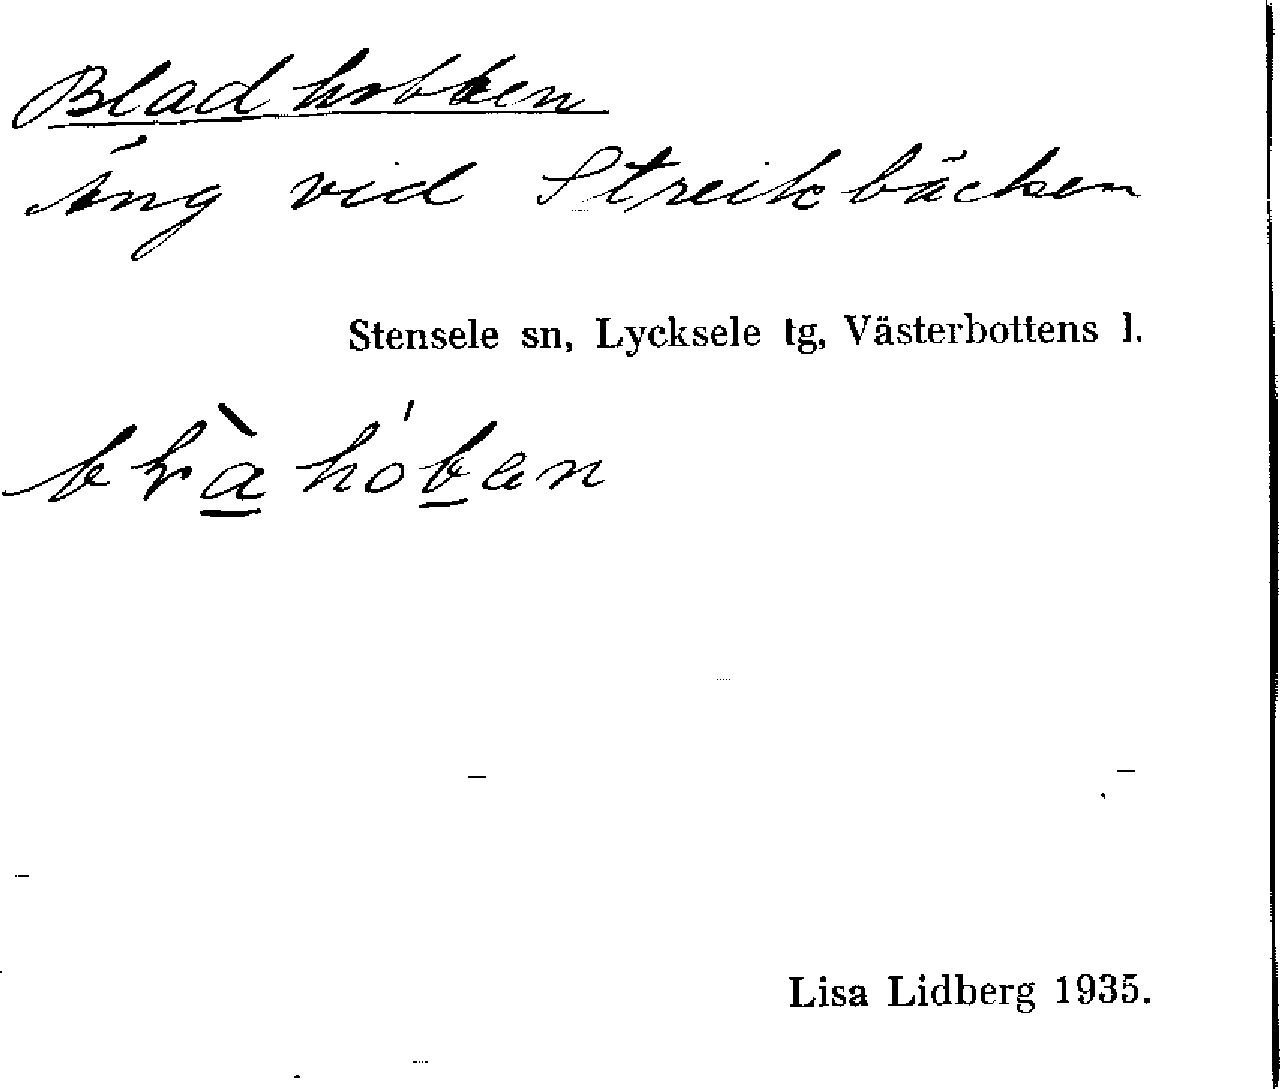 Bladhobben
äng vid Streikbäcken
Stensele sn, Lycksele tg, Västerbottens l.
Lisa Lidberg 1935.